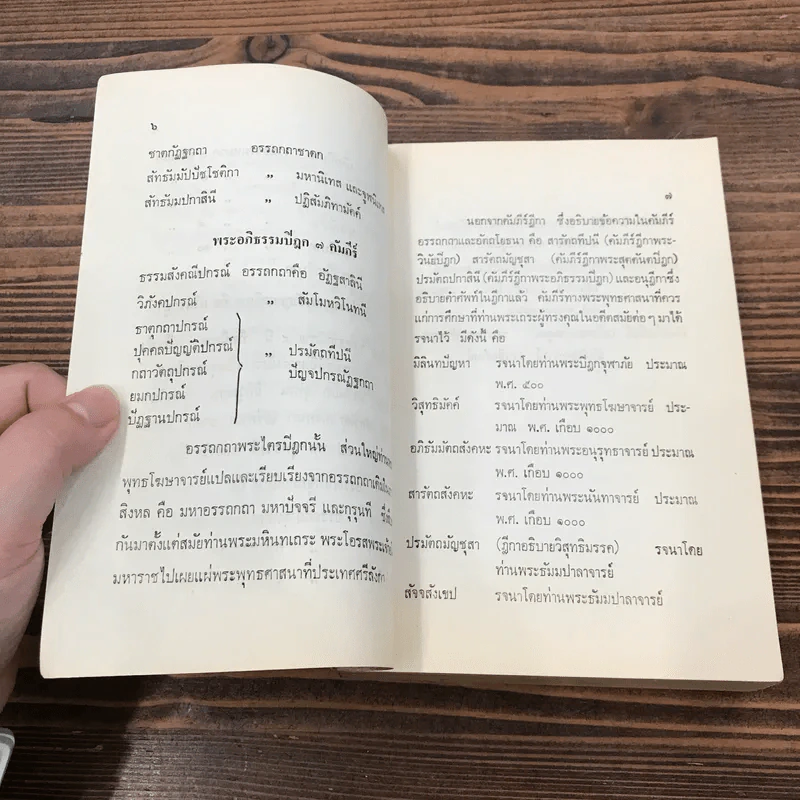 ๖
ชาตกัฏฐกถา อรรถกถาชาดก
สัทธัมมัปปัชโชติกา „ มหานิเทส และจูฬนิเทส
สัทธัมมปกาสินี „ ปฏิสัมภิทามัคค์
พระอภิธรรมปิฎก ๗ คัมภีร์
ธรรมสังคณีปกรณ์ อรรถกถาคือ อัฏฐสาลินี
วิภังคปกรณ์ „ สัมโมหวิโนทนี
ธาตุกถาปกรณ์
ปุคคลบัญญัติปกรณ์ „ ปรมัตถทีปนี
กถาวัตถุปกรณ์ ปัญจปกรณัฏฐกถา
ยมกปกรณ์
ปัฏฐานปกรณ์
อรรถกถาพระไตรปิฎกนั้น ส่วนใหญ่
พุทธโฆษาจารย์แปลและเรียบเรียงจากอรรถกถา
สิงหล คือ มหาอรรถกถา มหาปัจจรี และกุรุนที
กันมาตั้งแต่สมัยท่านพระมหินทเถระ พระโอรสพระเจ้า
มหาราชไปเผยแผ่พระพุทธศาสนาที่ประเทศศรีลังกา
๗
นอกจากคัมภีร์ฎีกา ซึ่งอธิบายข้อความในคัมภีร์
อรรถกถาและอัตถโยชนา คือ สารัตถทีปนี (คัมภีร์ฎีกาพระ-
วินัยปิฎก) สารัตถมัญชุสา (คัมภีร์ฎีกาพระสุตตันตปิฎก)
ปรมัตถปกาสินี (คัมภีร์ฎีกาพระอภิธรรมปิฎก) และอนุฎีกาซึ่ง
อธิบายคำศัพท์ในฎีกาแล้ว คัมภีร์ทางพระพุทธศาสนาที่ควร
แก่การศึกษาที่ท่านพระเถระผู้ทรงคุณในอดีตสมัยต่อๆ มาได้
รจนาไว้ มีดังนี้ คือ
มิลินทปัญหา รจนาโดยท่านพระปิฎกจุฬาภัย ประมาณ
พ.ศ. ๕๐๐
วิสุทธิมัคค์ รจนาโดยท่านพระพุทธโฆษาจารย์ ประ-
มาณ พ.ศ. เกือบ ๑๐๐๐
อภิธัมมัตถสังคหะ รจนาโดยท่านพระอนุรุทธาจารย์ ประมาณ
พ.ศ. เกือบ ๑๐๐๐
สารัตถสังคหะ รจนาโดยท่านพระนันทาจารย์ ประมาณ
พ.ศ. เกือบ ๑๐๐๐
ปรมัตถมัญชุสา (ฎีกาอธิบายวิสุทธิมรรค) รจนาโดย
ท่านพระธัมมปาลาจารย์
สัจจสังเขป รจนาโดยท่านพระธัมมปาลาจารย์